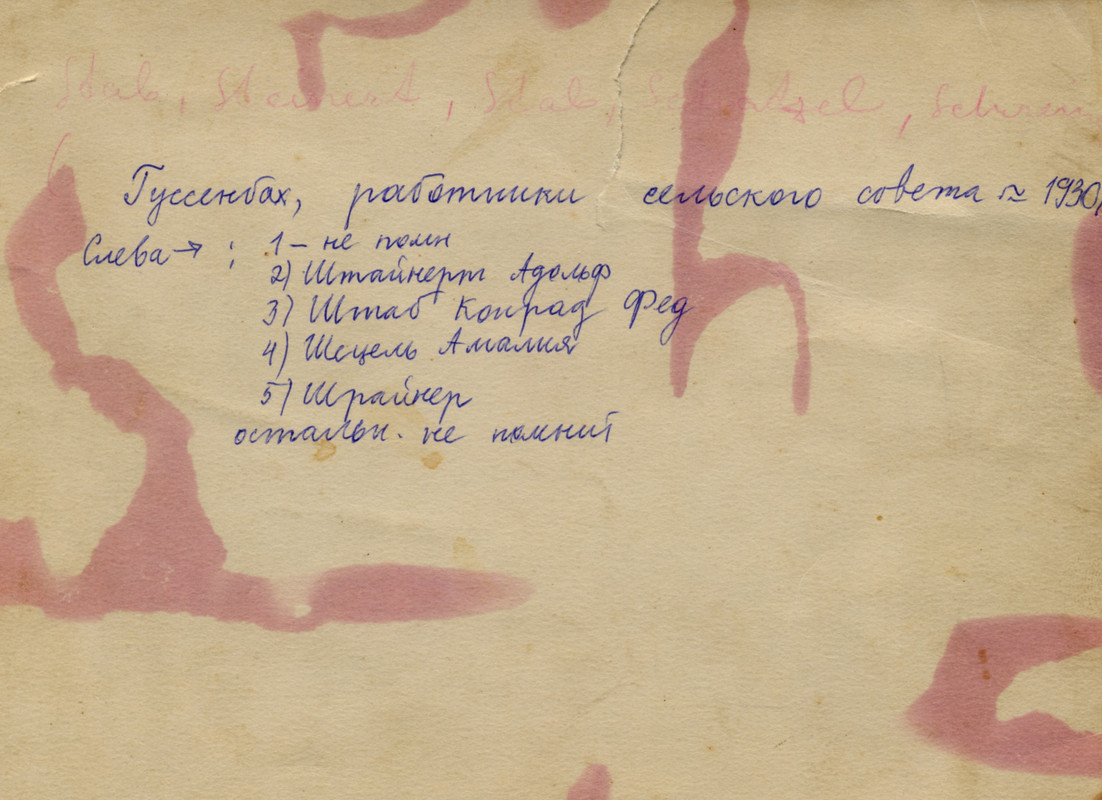 Stab, Steinert, Stab, Schetzel, Schrein
Гуссенбах, работники сельского совета ≈ 1930
Слева → : 1 – не помн
2) Штайнерт Адольф
3) Штаб Конрад Фед
4) Шецель Амалия
5) Шрайнер
остальн. не помнит